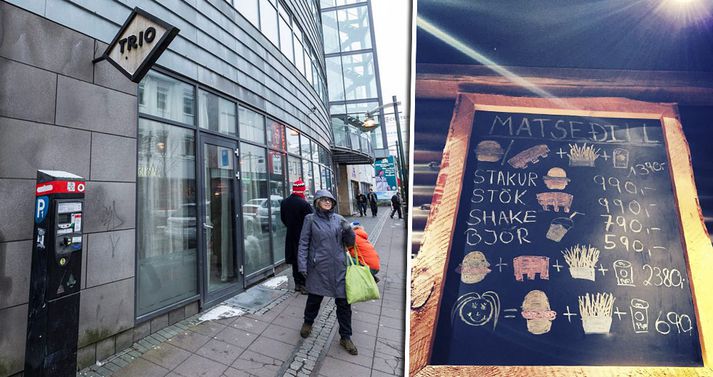 TRIO
P
MATSEÐILL
/ + + 1390,-
STAKUR 990,-
STÖK 990,-
SHAKE 790,-
BJÓR 590,-
+ + + 2380,-
= + + 690,-